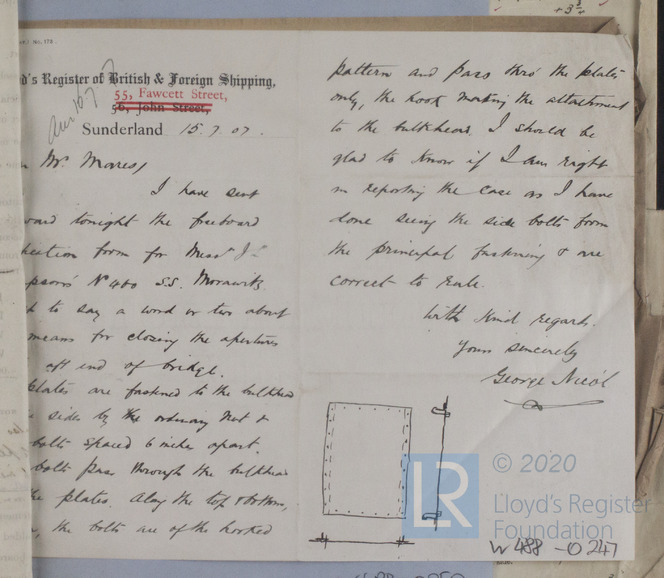 d's Register of British & Foreign Shipping,
55, Fawcett Street,
56, John Street,
Sunderland 15.7.07.
Mr. Morress
I have sent
ward tonight the freeboard
ection form for Messrs J
pson's No 460 S.S. Morawitz
to say a word or two about
means for closing the apertures
aft end of bridge.
plates are fastened to the bulkhead
sides by the ordinary nut &
bolts spaced 6 inches apart.
bolts pass through the bulkhead
the plates. Along the top & bottom,
the bolts are of the hooked
pattern and pass thro' the plates
only, the hook making the attachment
to the bulkhead. I should be
glad to know if I am right
in reporting the case as I have
done seeing the side bolts form
the principal fastening & are
correct to Rule.
With kind regards.
Yours sincerely
George Nicol
LR
© 2020
Lloyd's Register
Foundation
W 488 - 0247